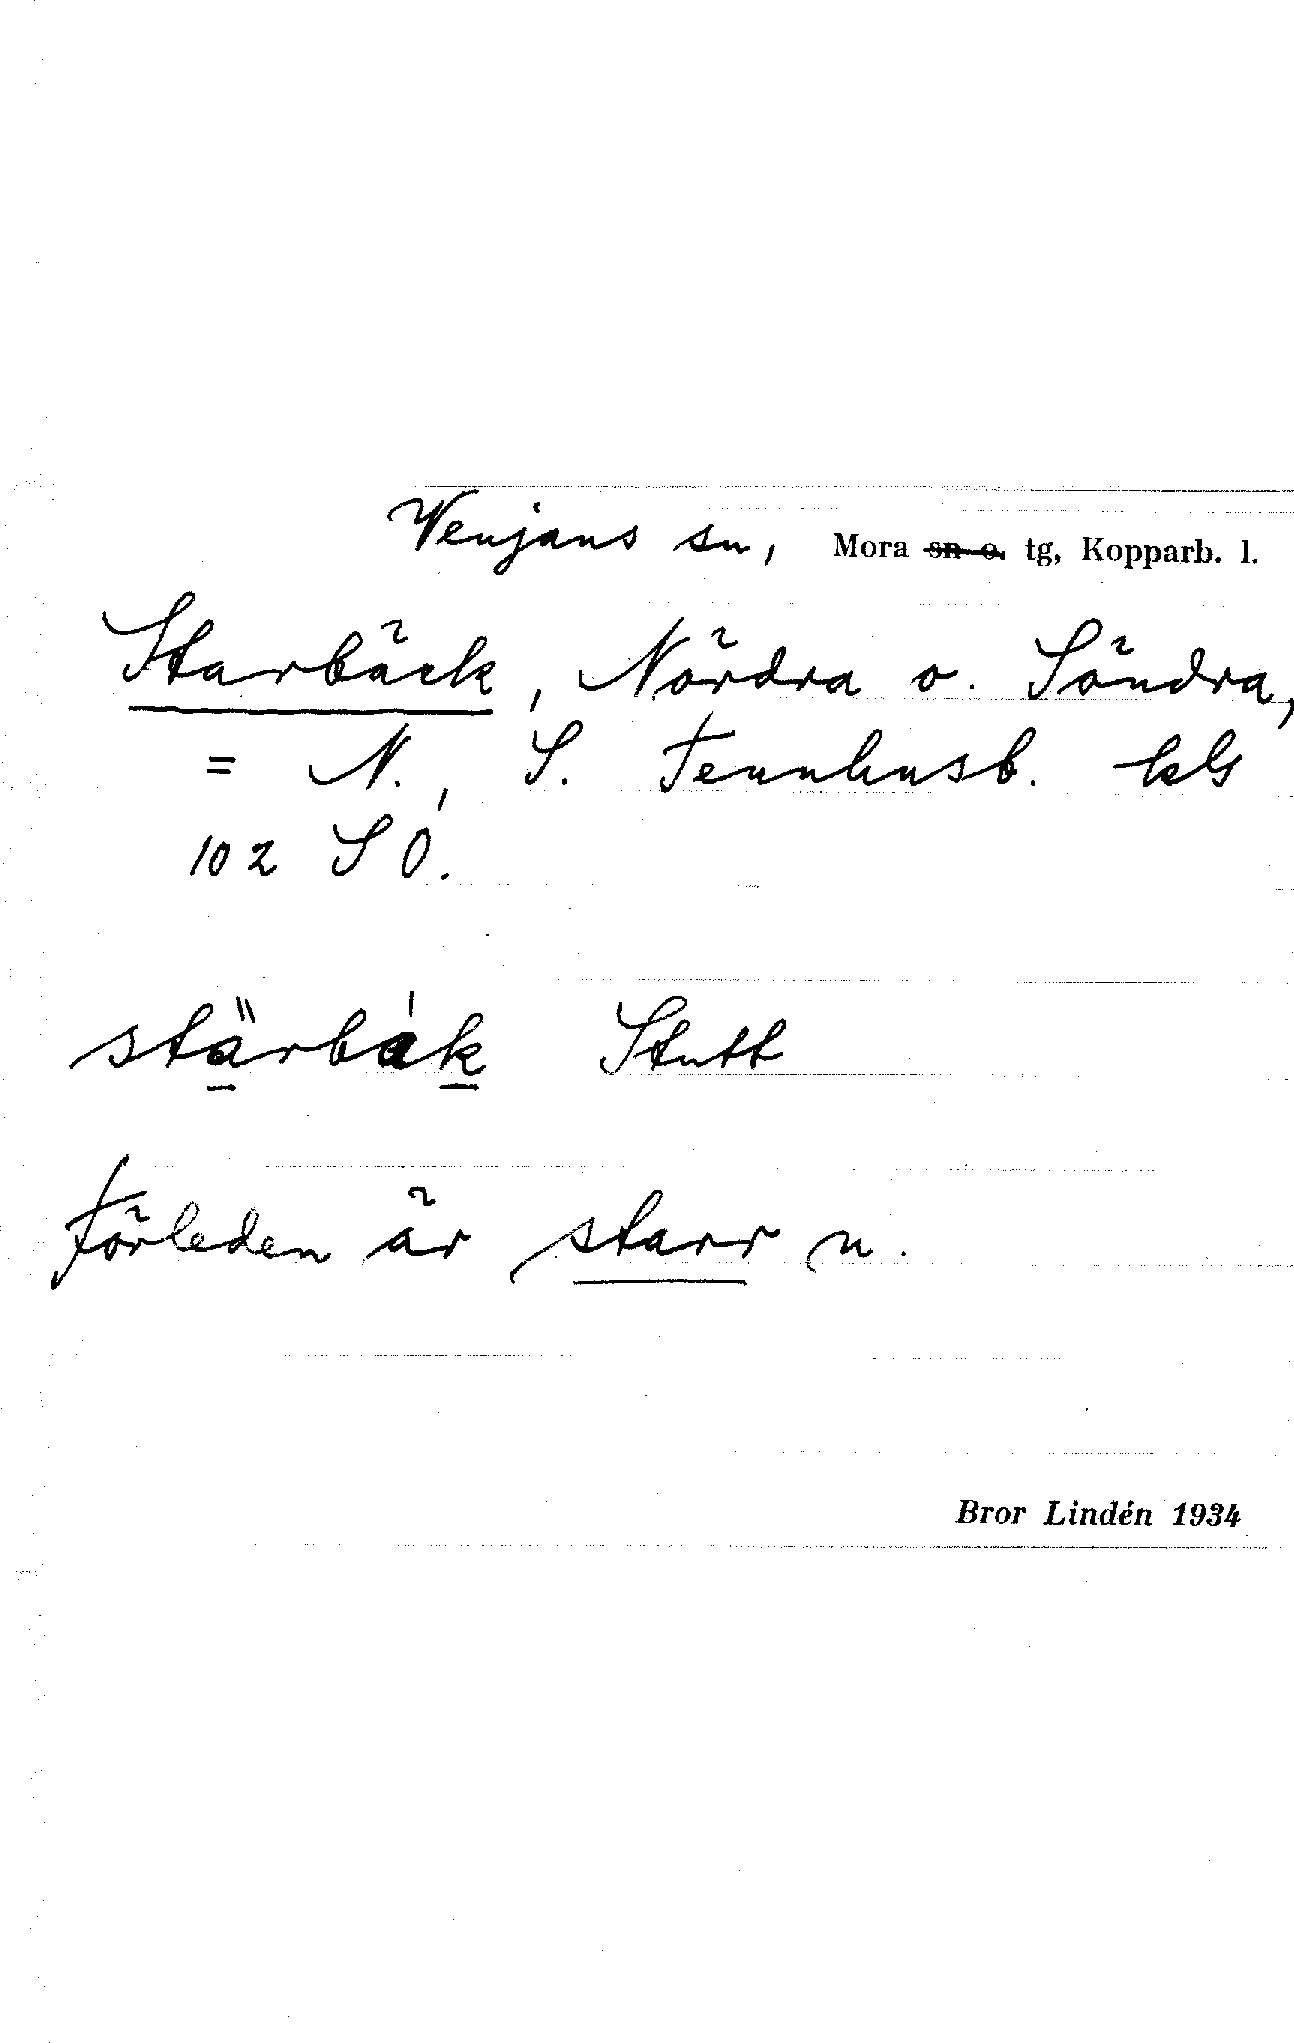 Wenjans sn, Mora sn o. tg, Kopparb. l.
Starbäck, Nördra o. Söndra,
= N., S. Tennhusb. kbl
102 SO.
stärbák Stutt
Förleden är starr n.
Bror Lindén 1934